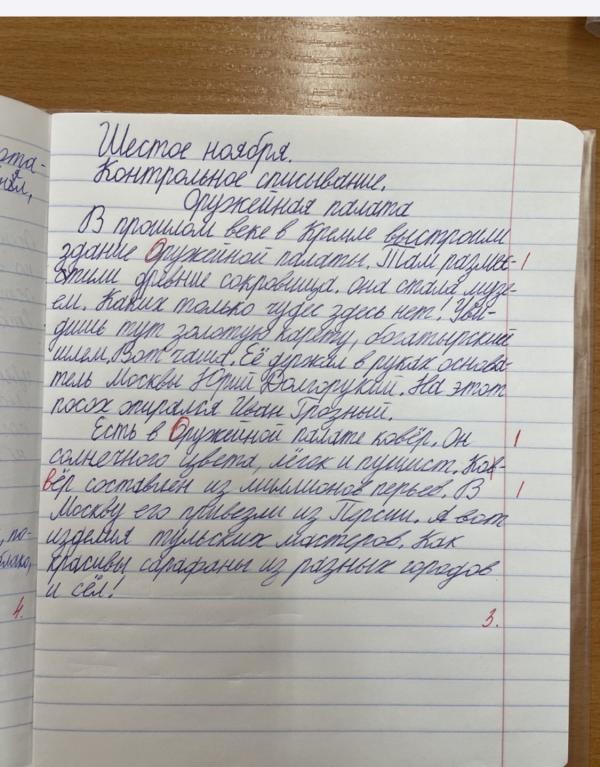 ота-
нал,
Шестое ноября.
Контрольное списывание.
Оружейная палата
В прошлом веке в Кремле выстроили
здание Оружейной палаты. Там разме- 1
стили древние сокровища. Она стала музе-
ем. Каких только чудес здесь нет! Уви-
дишь тут золотую карету, богатырский
шлем. Вот чаша. Её держал в руках основа-
тель Москвы Юрий Долгорукий. На этот
посох опирался Иван Грозный.
Есть в Оружейной палате ковёр. Он 1
солнечного цвета, лёгок и пушист. Ков-
вёр составлен из миллионов перьев. В 1
Москву его привезли из Персии. А вот
изделия тульских мастеров. Как
красивы сарафаны из разных городов
и сёл!
по-
4.
3.